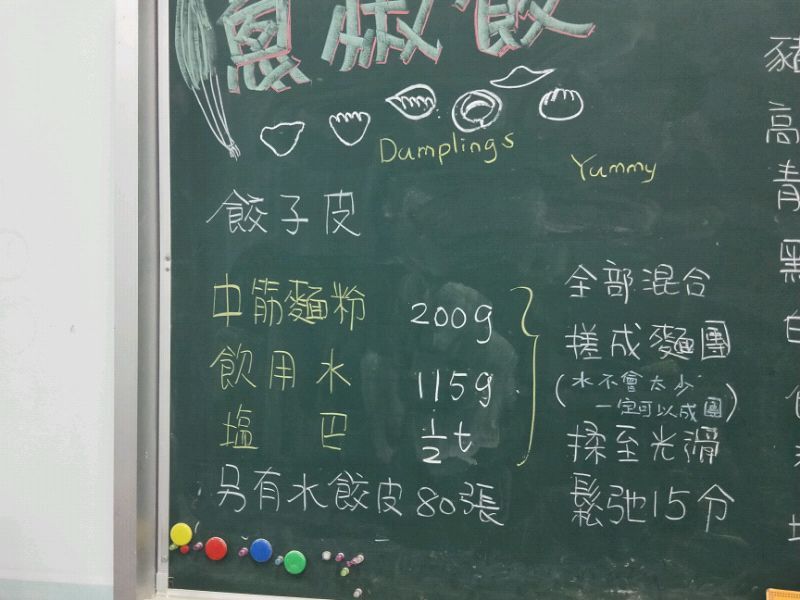 蔥椒餃
Dumplings
Yummy
餃子皮
中筋麵粉 200g
飲用水 115g
塩巴 1/2 t
另有水餃皮80張
全部混合
搓成麵團
(水不會太少
一定可以成團)
揉至光滑
鬆弛15分
豬
高
青
黑
白